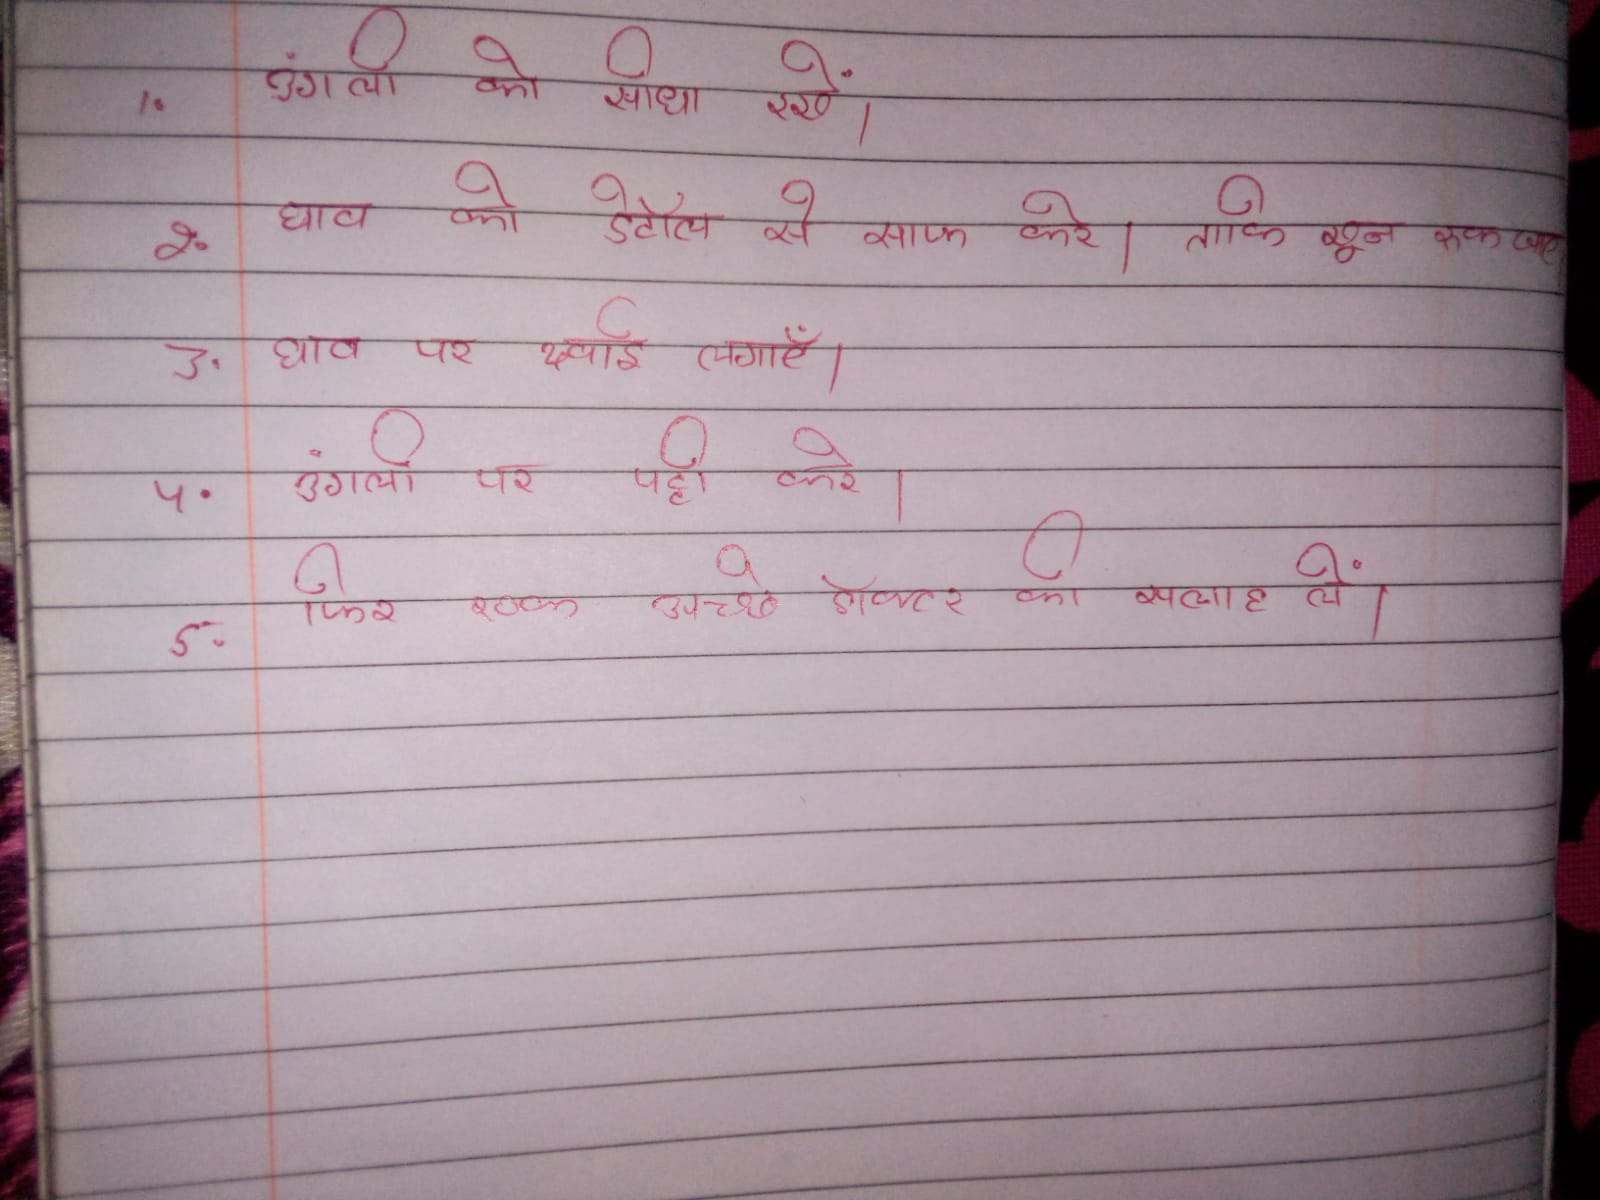 1. उंगली को सीधा रखें।
2. घाव को डेटॉल से साफ करे। ताकि खून रूक जाए
3. घाव पर दवाई लगाएँ।
4. उंगली पर पट्टी करे।
5. फिर एक अच्छे डॉक्टर की सलाह लें।